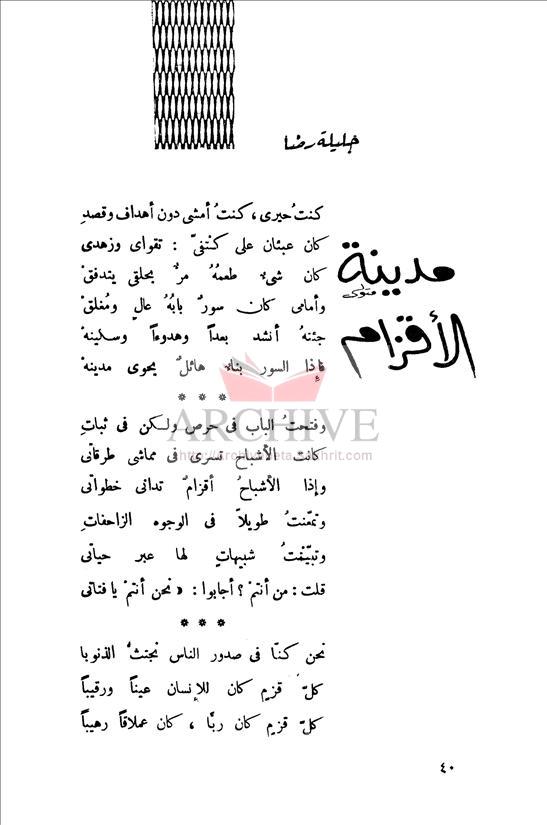 جليلة رضا
مدينة
الأقزام
كنتُ حيرى ، كنتُ أمشى دون أهداف وقصدِ
كان عبئان على كتفىّ : تقواى وزهدى
كان شىء طعمهُ مرٌّ بحلقى يتدفقْ
وأمامى كان سورٌ بابُهُ عالٍ ومُغلقْ
جئتهُ أنشد بعداً وهدوءاً وسكينهْ
فإذا السور بناء هائلٌ يحوى مدينهْ
* * *
وفتحتُ الباب فى حرص ولكن فى ثباتِ
كانت الأشباح تسرى فى مماشى طرقاتى
وإذا الأشباحُ أقزامٌ تدانى خطواتى
وتمعّنتُ طويلاً فى الوجوه الزاحفاتِ
وتبيّنتُ شبيهاتٍ لها عبر حياتى
قلت : من أنتمْ ؟ أجابوا : « نحن أنتمْ يا فتاتى
* * *
نحن كنّا فى صدور الناس نجتثُّ الذنوبا
كلّ قزمٍ كان للإنسان عيناً ورقيباً
كلّ قزمٍ كان ربًّا ، كان عملاقاً رهيباً
ARCHIVE
٤٠